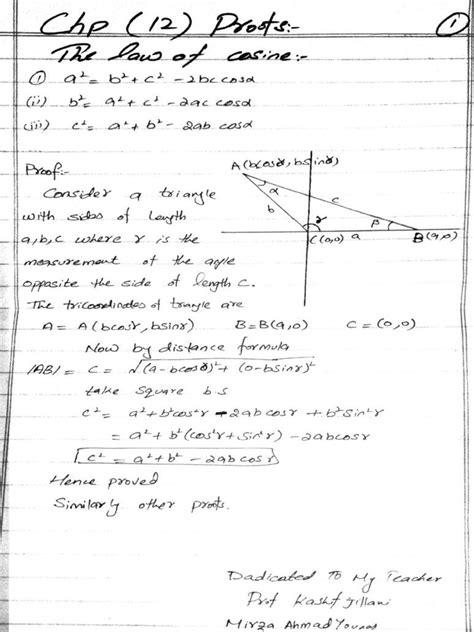 Chp (12) Proofs:- ①
The law of cosine:-
① a² = b² + c² - 2bc cosα
(ii) b² = a² + c² - 2ac cosα
(iii) c² = a² + b² - 2ab cosα
Proof:-
A(bcosγ, bsinγ)
α
c
b
γ
β
C(0,0)
a
B(a,0)
Consider a triangle
with sides of length
a,b,c where γ is the
measurement of the angle
opposite the side of length c.
The tricoordinates of triangle are
A = A(bcosγ, bsinγ) B = B(a,0) C = (0,0)
Now by distance formula
|AB| = c = √(a-bcosγ)² + (0-bsinγ)²
take square b.s
c² = a² + b²cos²γ - 2abcosγ + b²sin²γ
= a² + b²(cos²γ + sin²γ) - 2abcosγ
c² = a² + b² - 2abcosγ
Hence proved
Similarly other proofs.
Dadicated To My Teacher
Prof Kashif Jillani
Mirza Ahmad Younas